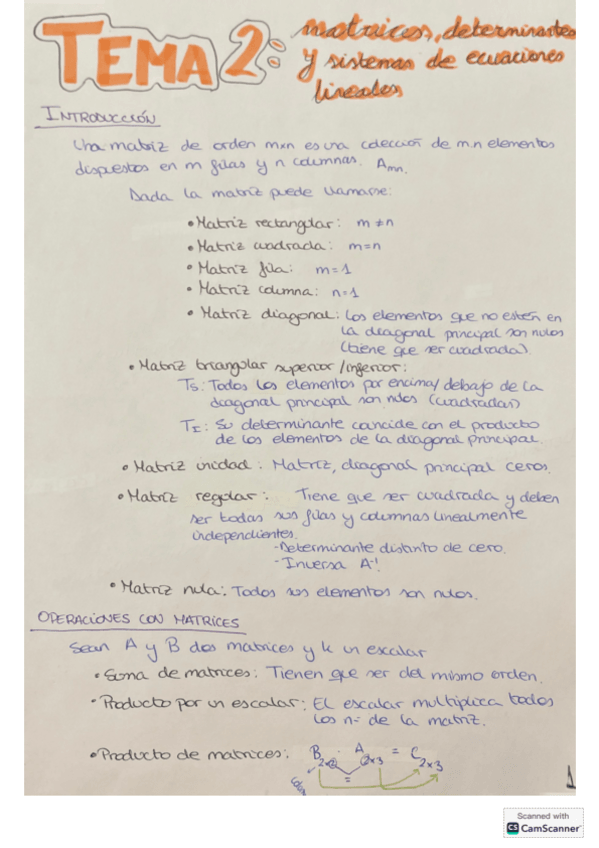 TEMA 2: matrices, determinantes
y sistemas de ecuaciones
lineales
INTRODUCCIÓN
Una matriz de orden mxn es una colección de m.n elementos
dispuestos en m filas y n columnas. Amn.
Dada la matriz puede llamarse:
• Matriz rectangular: m ≠ n
• Matriz cuadrada: m=n
• Matriz fila: m=1
• Matriz columna: n=1
• Matriz diagonal: Los elementos que no estén en
la diagonal principal son nulos
(tiene que ser cuadrada).
• Matriz triangular superior/inferior:
Ts: Todos los elementos por encima/debajo de la
diagonal principal son nulos (cuadradas)
TI: Su determinante coincide con el producto
de los elementos de la diagonal principal.
• Matriz unidad: Matriz, diagonal principal ceros.
• Matriz regular: Tiene que ser cuadrada y deben
ser todas sus filas y columnas linealmente
independientes.
-Determinante distinto de cero.
-Inversa A⁻¹
• Matriz nula: Todos sus elementos son nulos.
OPERACIONES CON MATRICES
Sean A y B dos matrices y k un escalar
• Suma de matrices: Tienen que ser del mismo orden.
• Producto por un escalar: El escalar multiplica todos
los nº de la matriz.
• Producto de matrices: B2x2 · A2x3 = C2x3
=
1
Scanned with
CS CamScanner